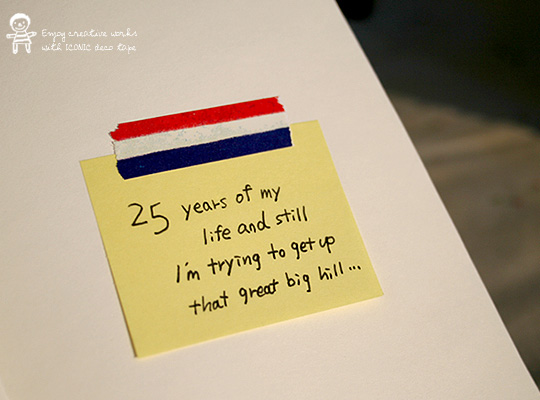 Enjoy creative works
with ICONIC deco tape
25 years of my
life and still
I'm trying to get up
that great big hill...